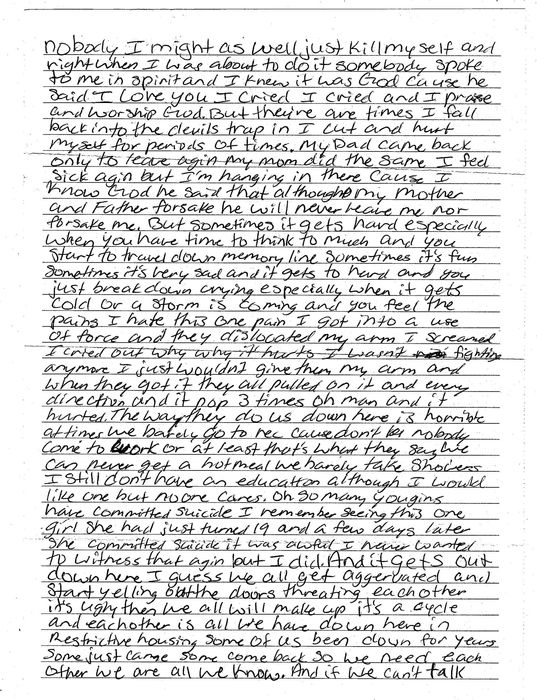 nobody I might as well just kill my self and
right when I was about to do it somebody spoke
to me in spirit and I knew it was God cause he
said I love you I cried I cried and I praise
and worship God. But they're are times I fall
back into the devils trap in I cut and hurt
myself for periods of times. My Dad came back
only to leave agin my mom did the same I feel
sick agin but I'm hanging in there cause I
know God he said that although my mother
and Father forsake he will never leave me nor
forsake me. But sometimes it gets hard especially
when you have time to think to much and you
start to travel down memory line sometimes it's fun
sometimes it's very sad and it gets to hard and you
just break down crying especially when it gets
cold or a storm is coming and you feel the
pains I hate this one pain I got into a use
of force and they dislocated my arm I screamed
I cried out why why it hurts I wasn't fighting
anymore I just wouldn't give them my arm and
when they got it they all pulled on it and every
direction and it pop 3 times oh man and it
hurted. The way they do us down here is horrible
at times we barely go to rec cause don't nobody
come to work or at least that's what they say we
can never get a hot meal we hardly take showers
I still don't have an education although I would
like one but no one cares. Oh so many yougins
have committed suicide I remember seeing this one
girl she had just turned 19 and a few days later
she committed suicide it was awful I never wanted
to witness that agin but I did. And it gets out
down here I guess we all get aggerbated and
start yelling out the doors threating eachother
it's ugly then we all will make up it's a cycle
and eachother is all we have down here in
Restrictive housing some of us been down for years
some just came some come back so we need each
other we are all we know. And if we can't talk